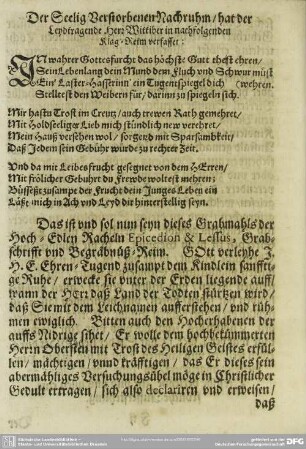 Der Seelig Verstorbenen Nachruhm / hat der
Leydtragende Herr Wittiber in nachfolgenden
Klag-Reim verfasset:
IN wahrer Gottesfurcht das höchste Gutt thest ehren /
Sein Lebenlang dein Mund dem Fluch und Schwur must
Ein' Laster-Hasserinn' ein Tugentspiegel dich / wehren.
Stelltest den Weibern für / darinn zu spiegeln sich.
Mir hastu Trost im Creutz / auch trewen Rath gemehret /
Mit Holdseeliger Lieb mich stündlich new verehret /
Mein Hauß versehen wol / sorgend mit Sparsambkeit /
Daß Jedem sein Gebühr würde zu rechter Zeit.
Vnd da mit Leibesfrucht gesegnet von dem HErren /
Mit frölicher Gebuhrt du frewde woltest mehren:
Büssestu zusampt der Frucht dein Junges Leben ein
Läßt mich in Ach und Leyd dir hinterstellig seyn.
Das ist und sol nun seyn dieses Grabmahls der
Hoch-Edlen Racheln Epicedion & Lessus, Grab-
schrifft und Begräbnüß-Reim. GOtt verleyhe J.
H. E. Ehren-Tugend zusampt dem Kindlein sanffti-
ge Ruhe / erwecke sie unter der Erden liegende auff /
wann der HErr daß Land der Todten stürtzen wird /
daß Sie mit dem Leichnamen aufferstehen / und rüh-
men ewiglich. Bitten auch den Hocherhabenen der
auffs Nidrige sihet / Er wolle dem hochbekümmerten
Herrn Obersten mit Trost des Heiligen Geistes erfül-
len / mächtigen / vnnd kräfftigen / das Er dieses sein
abermähliges Versuchungsübel möge in Christlicher
Gedult ertragen / sich also declariren und erweisen /
daß